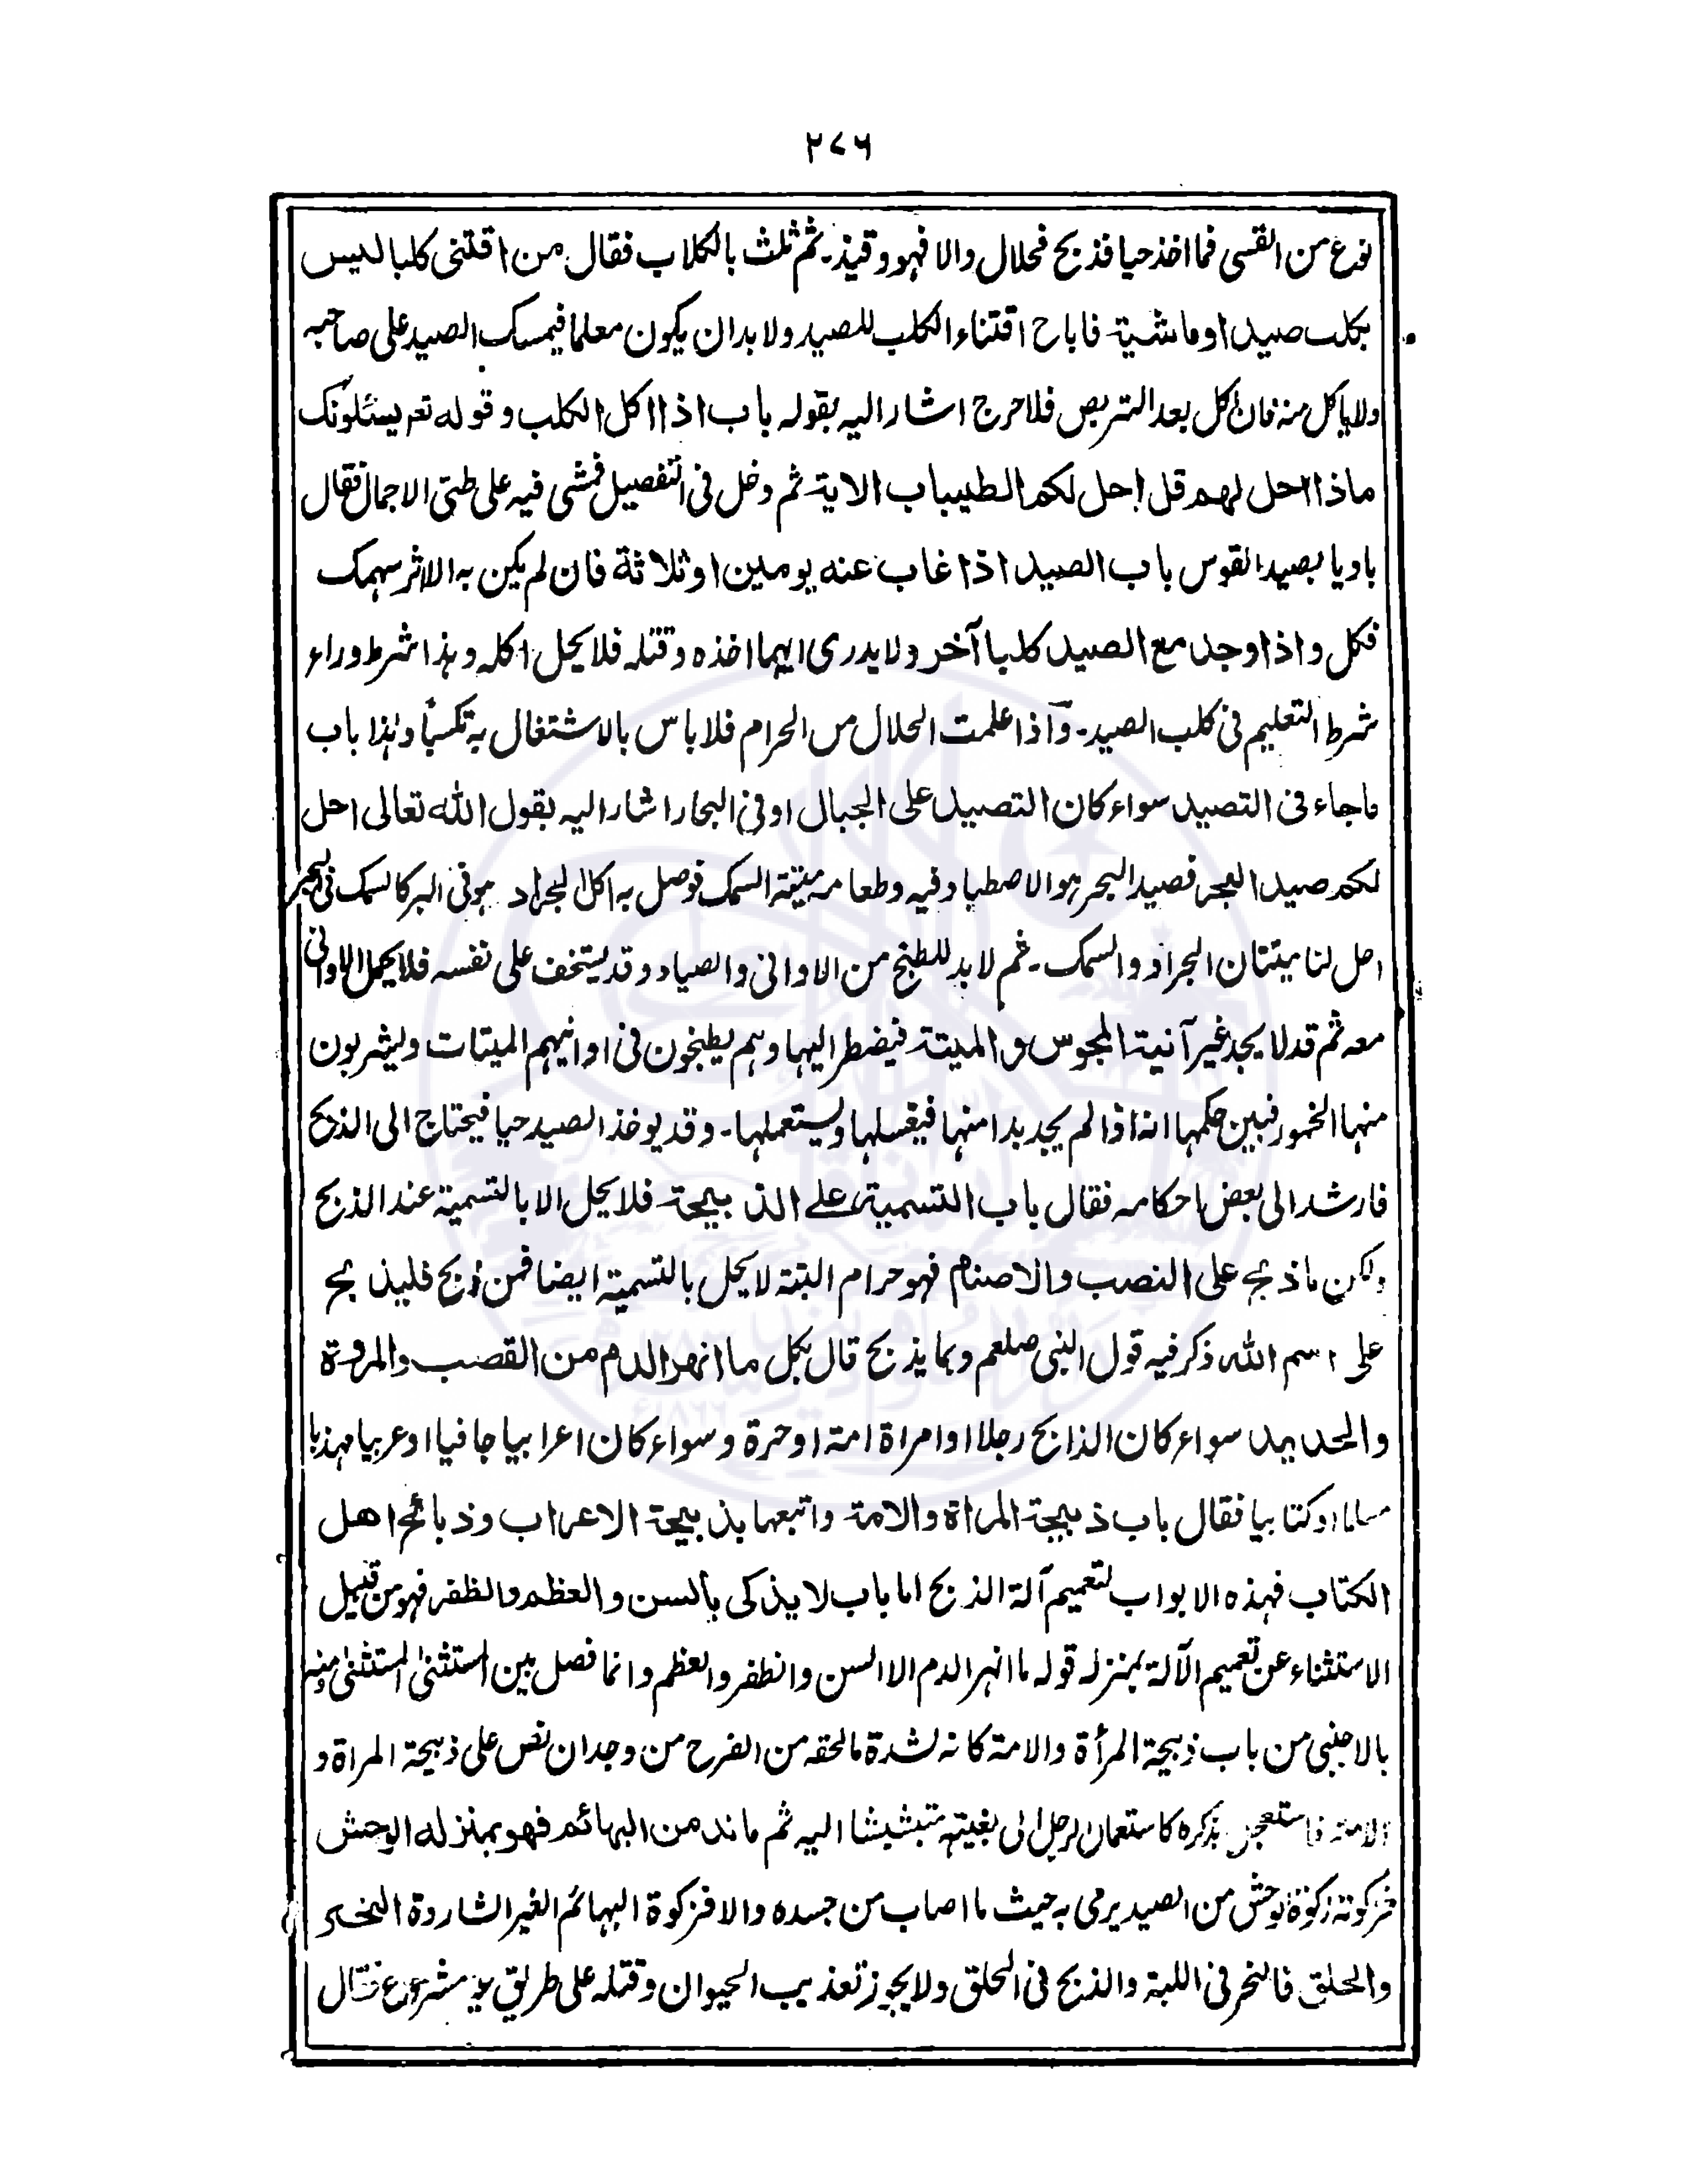 ۲۷۶
نوع من القسى فما اخذ حيا فذبح فحلال والا فهو وقيذ۔ ثم ثلث بالكلاب فقال من اقتنى كلبا ليس
بكلب صيد او ماشية فاباح اقتناء الكلب للصيد ولابد ان يكون معلما فيمسك الصيد على صاحبه
ولا ياكل منه فان اكل بعد التربص فلا حرج اشار اليه بقوله باب اذا اكل الكلب وقوله تعر يسئلونك
ماذا احل لهم قل احل لكم الطيبات الاية ثم دخل فى التفصيل فمشى فيه على طبق الاجمال فقال
باديا بصيد القوس باب الصيد اذا غاب عنه يومين او ثلاثة فان لم يكن به الا اثر سهمك
فكل واذا وجد مع الصيد كلبا آخر ولا يدرى ايهما اخذه وقتله فلا يحل اكله وهذا شرط وراء
شرط التعليم فى كلب الصيد۔ واذا علمت الحلال من الحرام فلا باس بالاشتغال به تكسبًا وهذا باب
ماجاء فى التصيد سواء كان التصيد على الجبال او فى البحار اشار اليه بقول الله تعالى احل
لكم صيد البحر فصيد البحر هو الاصطياد فيه وطعامه ميتة السمك فوصل به اكل الجراد هو فى البر كالسمك فى البحر
احل لنا ميتتان الجراد والسمك۔ ثم لابد للطبخ من الاوانى والصياد وقد يستخف على نفسه فلا يحمل الاوانى
معه ثم قد لا يجد غير آنية المجوس و الميتة فيضطر اليها وهم يطبخون فى اوانيهم الميتات ويشربون
منها الخمور فبين حكمها انه اذا لم يجد بدا منها فيغسلها ويستعملها۔ وقد يوخذ الصيد حيا فيحتاج الى الذبح
فارشد الى بعض احكامه فقال باب التسمية على الذبيحة فلا يحل الا بالتسمية عند الذبح
ولكن ما ذبح على النصب والاصنام فهو حرام البتة لا يحل بالتسمية ايضا فمن ذبح فليذبح
على اسم الله ذكر فيه قول النبى صلعم وبما يذبح قال بكل ما انهر الدم من القصب والمروة
والحديد سواء كان الذابح رجلا او امراة امة او حرة وسواء كان اعرابيا جافيا او عربيا مهذبا
مسلما او كتابيا فقال باب ذبيحة المراة والامة واتبعها بذبيحة الاعراب وذبائح اهل
الكتاب فهذه الابواب لتعميم آلة الذبح اما باب لا يذكى بالسن والعظم والظفر فهو من قبيل
الاستثناء عن تعميم الآلة بمنزله قوله ما انهر الدم الا السن والظفر والعظم وانما فصل بين المستثنى المستثنى منه
بالاجنبى من باب ذبيحة المرأة والامة كانه لشدة مالحقه من الفرح من وجدان نص على ذبيحة المراة و
الامة فاستعجل بذكره كاستعجال الرجل الى بغيته متبششا اليه ثم ماند من البهائم فهو بمنزله الوحش
فزكوته زكوة لوحش من الصيد يرمى به حيث ما اصاب من جسده والا فزكوة البهائم الغير الشاردة النحر
والحلق فالنحر فى اللبة والذبح فى الحلق ولا يجوز تعذيب الحيوان وقتله على طريق غير مشروع فقال